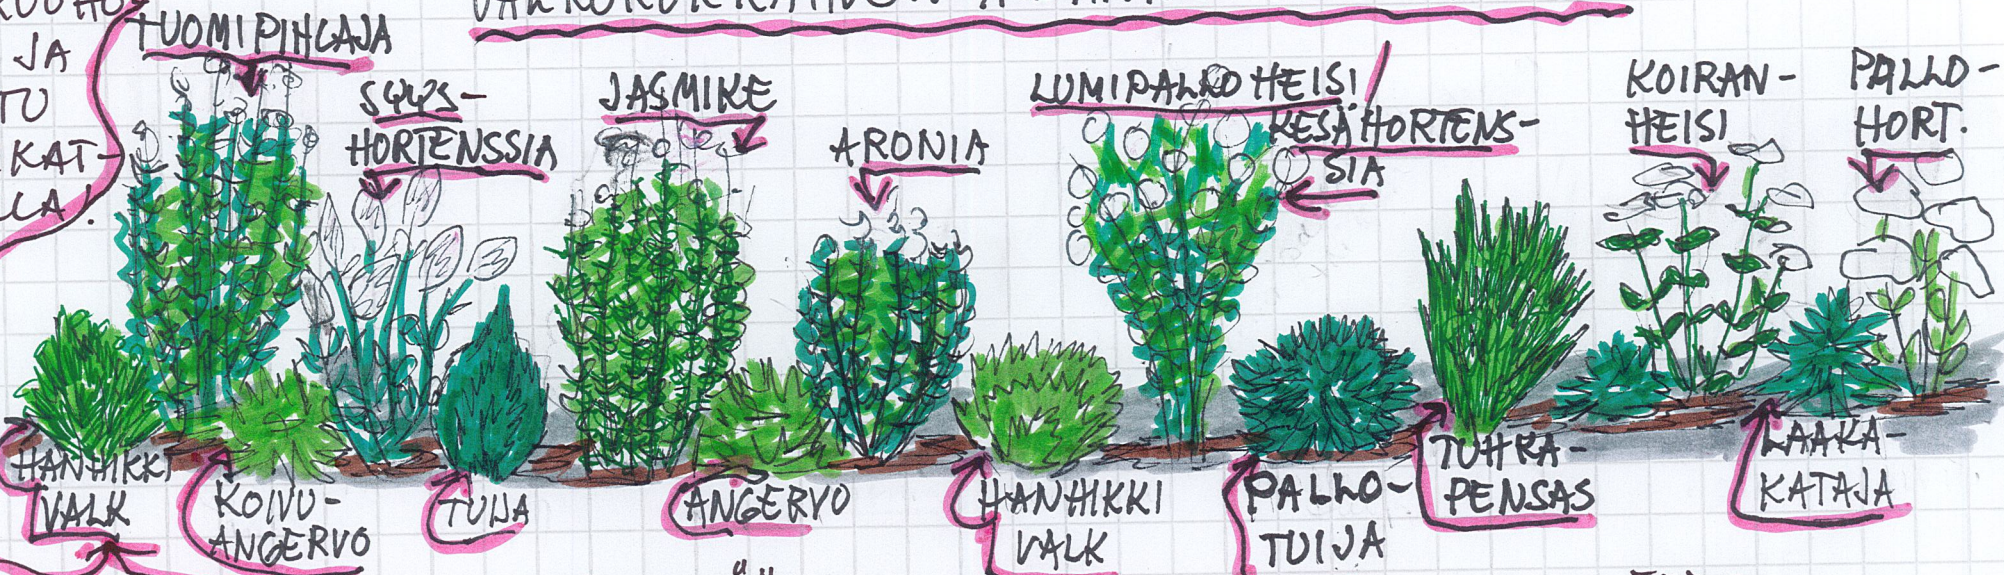 JA
TU
KAT-
LLA!
TUOMIPIHLAJA
SYYS-
HORTENSSIA
JASMIKE
ARONIA
LUMIPALLOHEISI
KESÄHORTENS-
SIA
KOIRAN-
HEISI
PALLO-
HORT.
HANHIKKI
VALK
KOIVU-
ANGERVO
TUIJA
ANGERVO
HANHIKKI
VALK
PALLO-
TUIJA
TUHKA-
PENSAS
LAAKA-
KATAJA